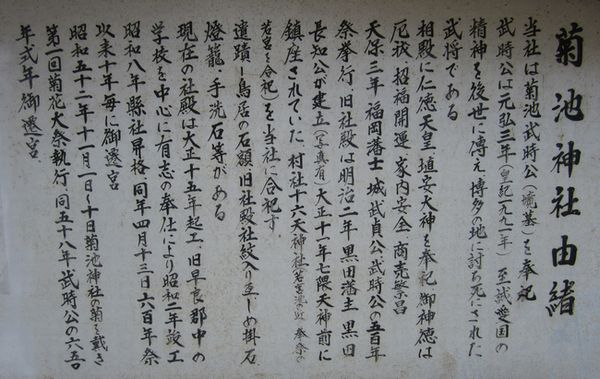 菊池神社由緒
当社は菊池武時公(墳墓)を奉祀
武時公は元弘三年(皇紀一九九一年)至誠愛国の
精神を後世に傳え博多の地に討ち死にされた
武将である
相殿に仁徳天皇 埴安大神を奉祀 御神徳は
厄祓 招福開運 家内安全 商売繁昌
天保三年 福岡藩士 城武貞公、武時公の五百年
祭挙行、旧社殿は明治二年 黒田藩主 黒田
長知公が建立(写真有)大正十一年七隈天神前に
鎮座されていた、村社十六天神社
若宮を合祀)を当社に合祀す。
遺蹟―鳥居の石額 旧社殿社紋入り 掛石
燈籠 手洗石等がある
現在の社殿は大正十五年起工、旧早良郡中の
学校を中心に有志の奉仕により昭和二年竣工
昭和八年縣社昇格 同年四月十三日六百年祭
以来十年毎に御遷宮
昭和五十二年十一月一日~十日菊池神社の菊を戴き
第一回菊花大祭執行、同五十八年武時公の六五〇
年式年御遷宮